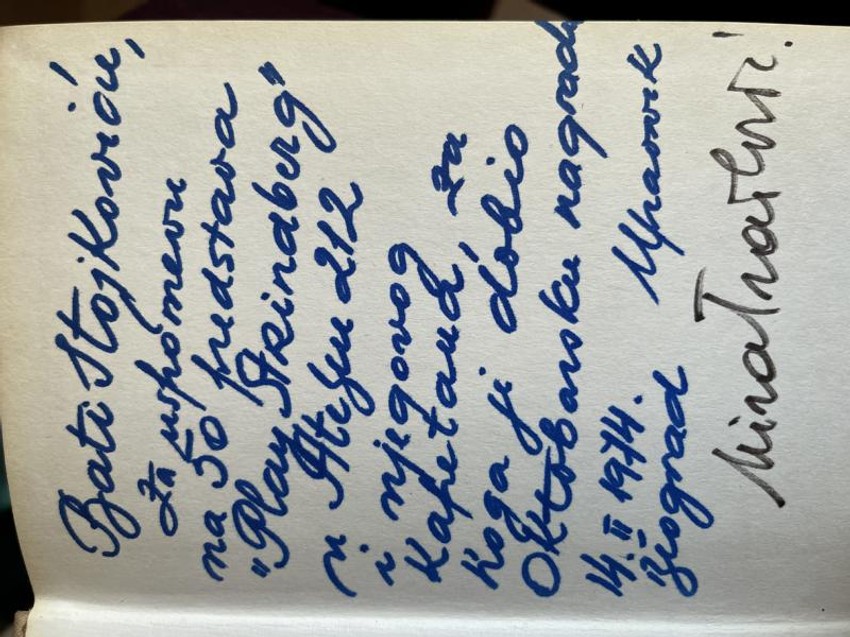 Bati Stojkoviću,
za uspomenu
na 50 predstava
"Play Strindberg"
u Ateljeu 212
i njegovog
Kapetana, za
koga je dobio
Oktobarsku nagradu
14. II 1974.
Beograd Upravnik
Mira Trailović